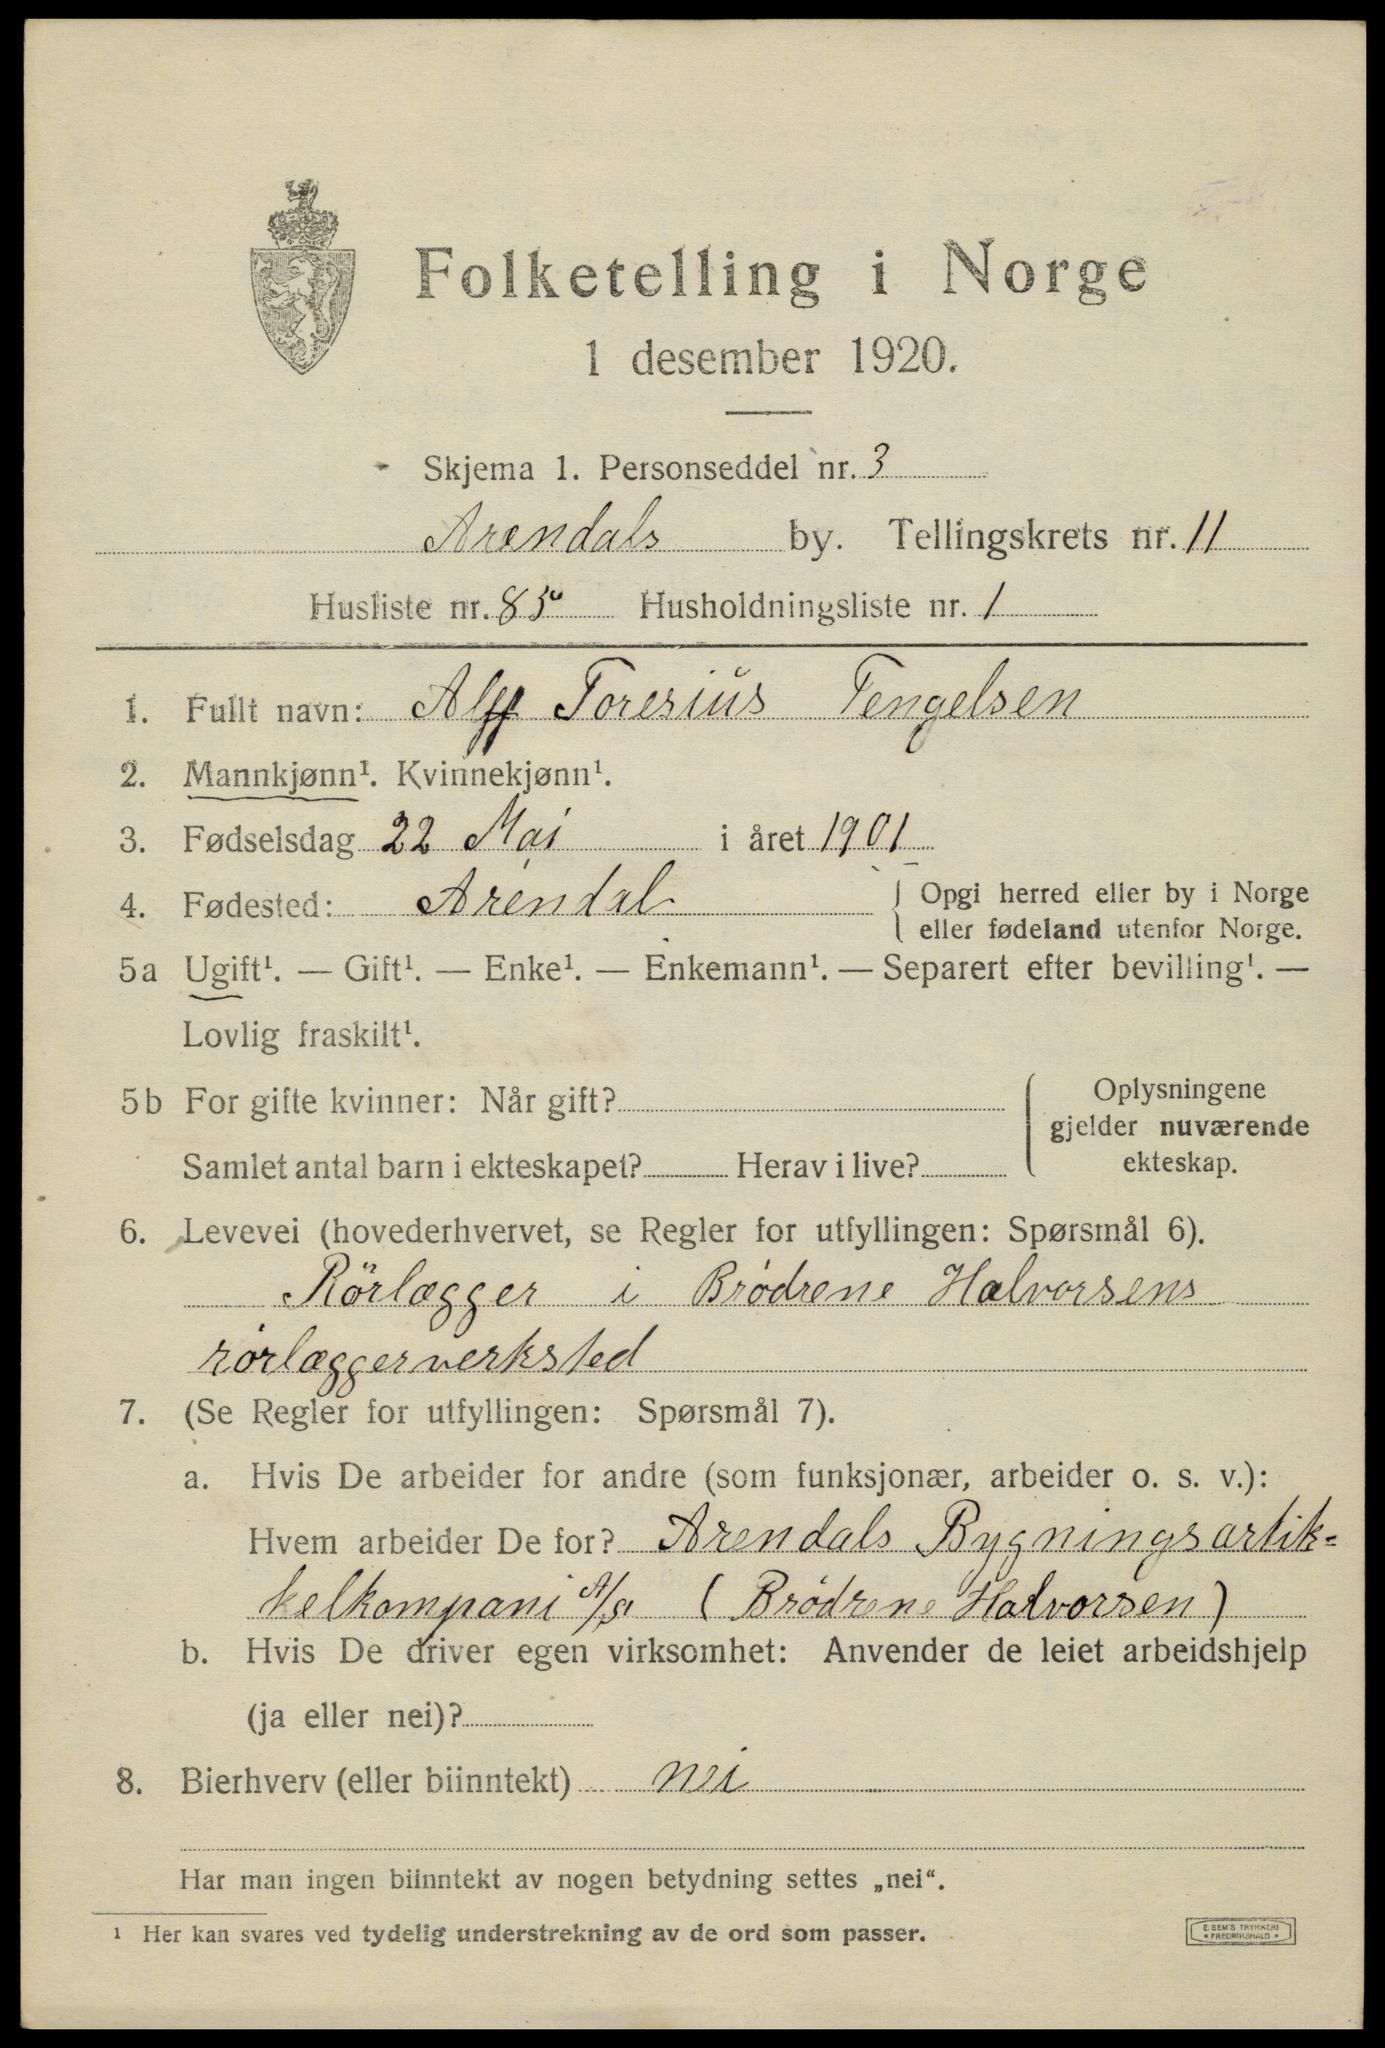 Folketelling i Norge
1 desember 1920.
Skjema 1. Personseddel nr. 3
Arendals by. Tellingskrets nr. 11
Husliste nr. 85 Husholdningsliste nr. 1
1. Fullt navn: Alf Toresius Tengelsen
2. Mannkjønn¹. Kvinnekjønn¹.
3. Fødselsdag 22 Mai i året 1901
4. Fødested: Arendal { Opgi herred eller by i Norge
eller fødeland utenfor Norge.
5a Ugift¹. — Gift¹. — Enke¹. — Enkemann¹. — Separert efter bevilling¹. —
Lovlig fraskilt¹.
5b For gifte kvinner: Når gift? { Oplysningene
gjelder nuværende
Samlet antal barn i ekteskapet? Herav i live? ekteskap.
6. Levevei (hovederhvervet, se Regler for utfyllingen: Spørsmål 6).
Rörlægger i Brödrene Halvorsens
rörlæggerverksted
7. (Se Regler for utfyllingen: Spørsmål 7).
a. Hvis De arbeider for andre (som funksjonær, arbeider o. s. v.):
Hvem arbeider De for? Arendals Bygningsartik-
kelkompani A/s (Brödrene Halvorsen)
b. Hvis De driver egen virksomhet: Anvender de leiet arbeidshjelp
(ja eller nei)?
8. Bierhverv (eller biinntekt) nei
Har man ingen biinntekt av nogen betydning settes „nei“.
¹ Her kan svares ved tydelig understrekning av de ord som passer.
E. SEM'S TRYKKERI
* FREDRIKSHALD *